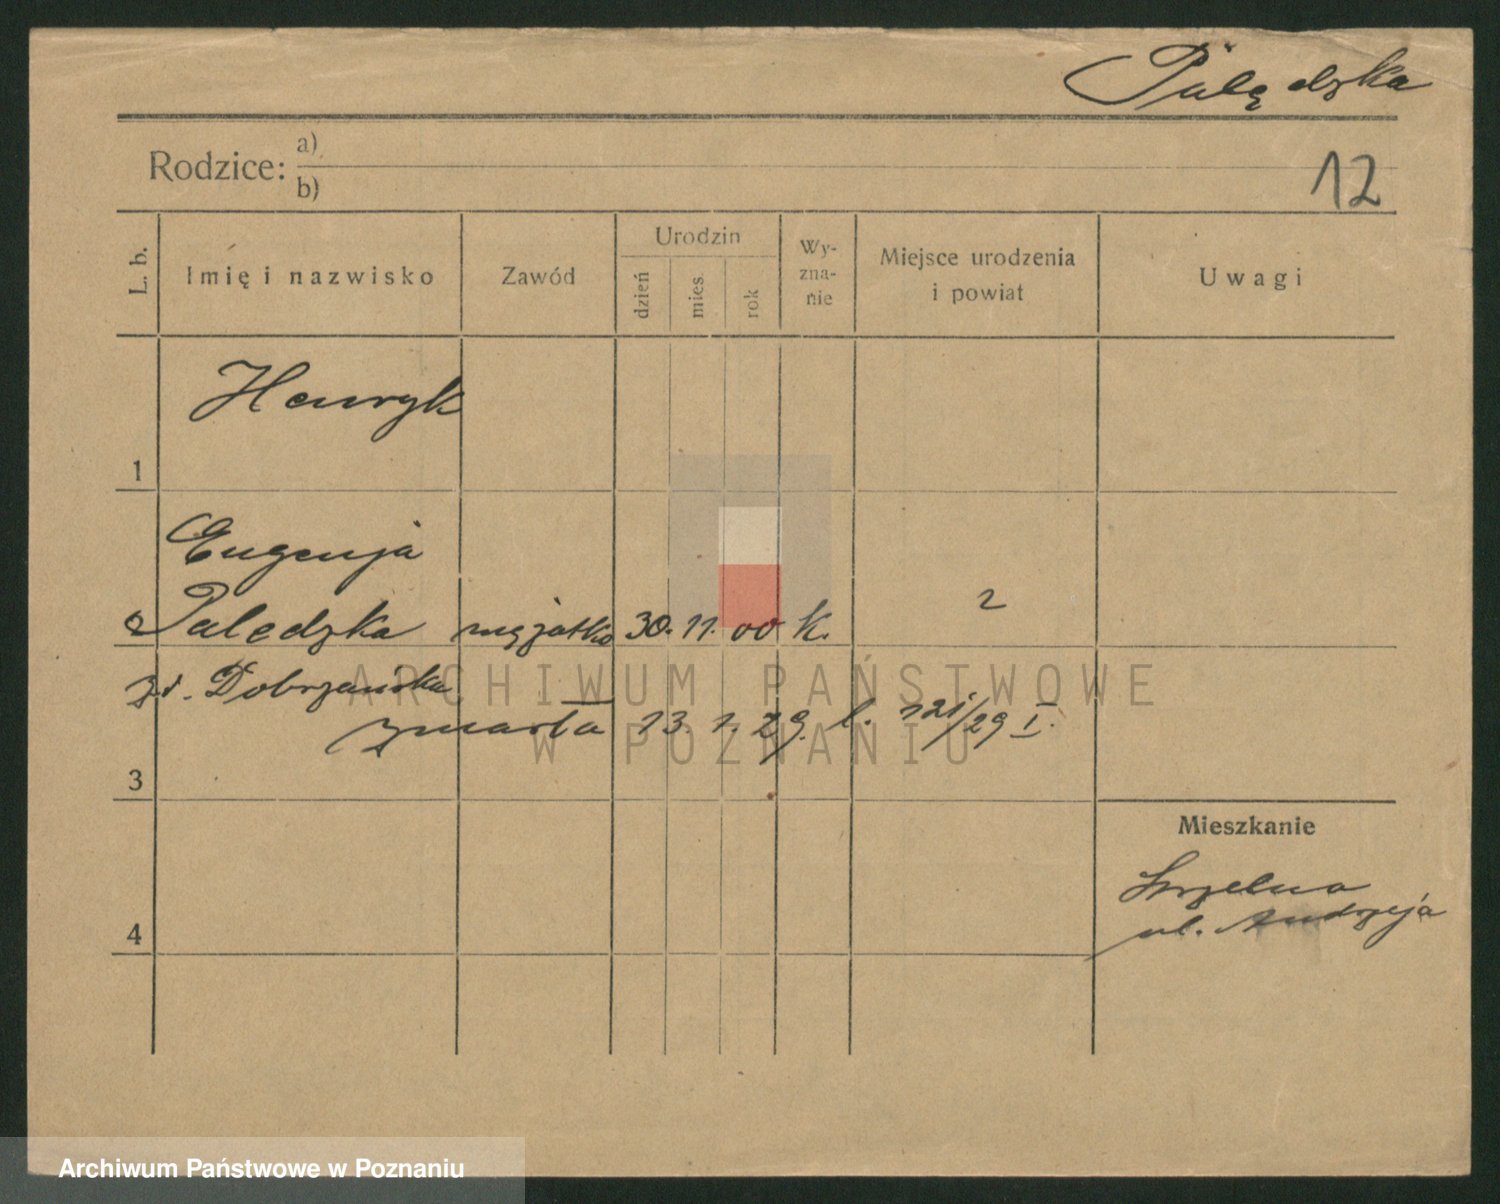 Palędzka
Rodzice: a)
b)
12
L. b.
Imię i nazwisko
Zawód
Urodzin
dzień
mies.
rok
Wy-
zna-
nie
Miejsce urodzenia
i powiat
Uwagi
Henryk
1
Eugenja
2 Paledzka mężatka 30. 11. 00 k.
zd. Dobrzańska
zmarła 13. 1. 29. l. 121/29 I.
3
Mieszkanie
Strzelno
ul. Andrzeja
4
ARCHIWUM PAŃSTWOWE
W POZNANIU
Archiwum Państwowe w Poznaniu